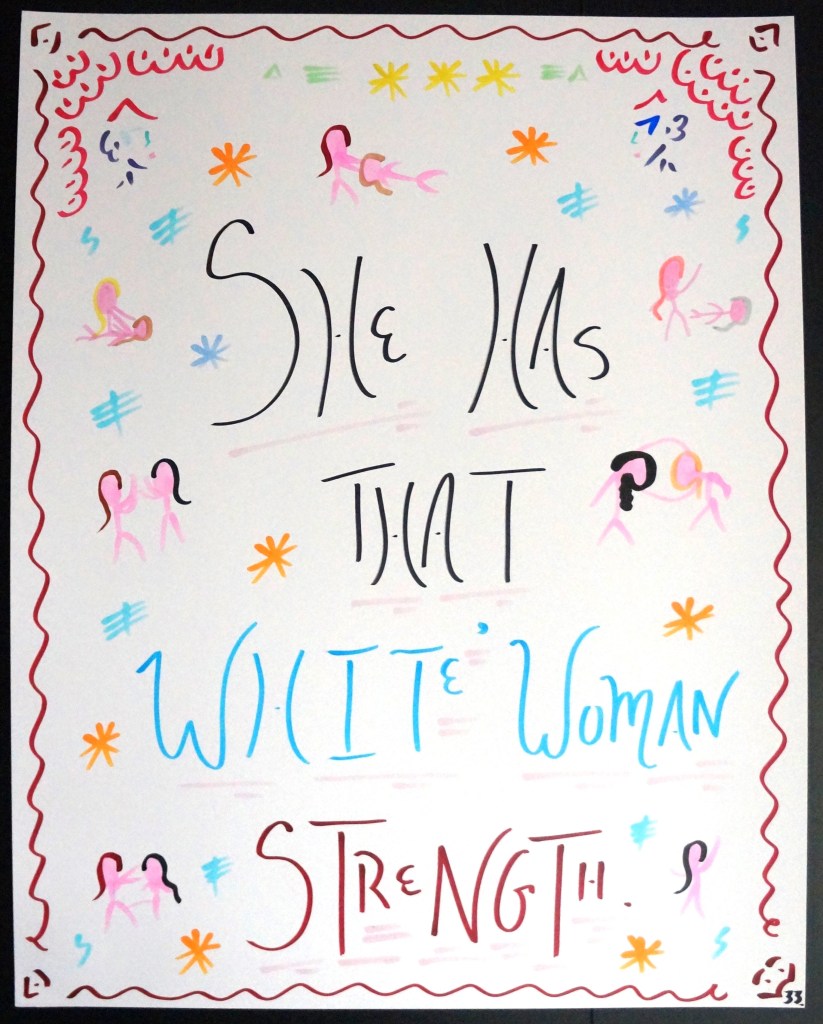 SHE HAS
THAT
WHITE' WOMAN
STRENGTH.
33